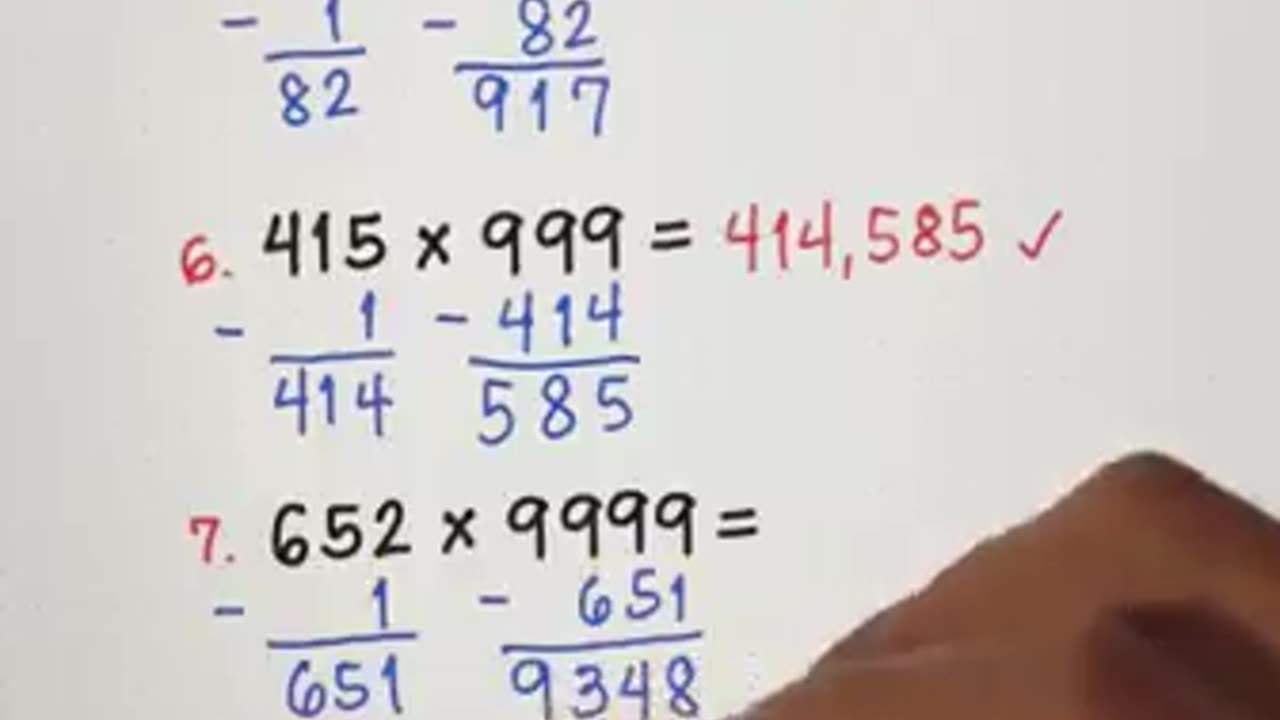 - 1 - 82
82 917
6. 415 × 999 = 414,585 ✓
- 1 - 414
414 585
7. 652 × 9999 =
- 1 - 651
651 9348